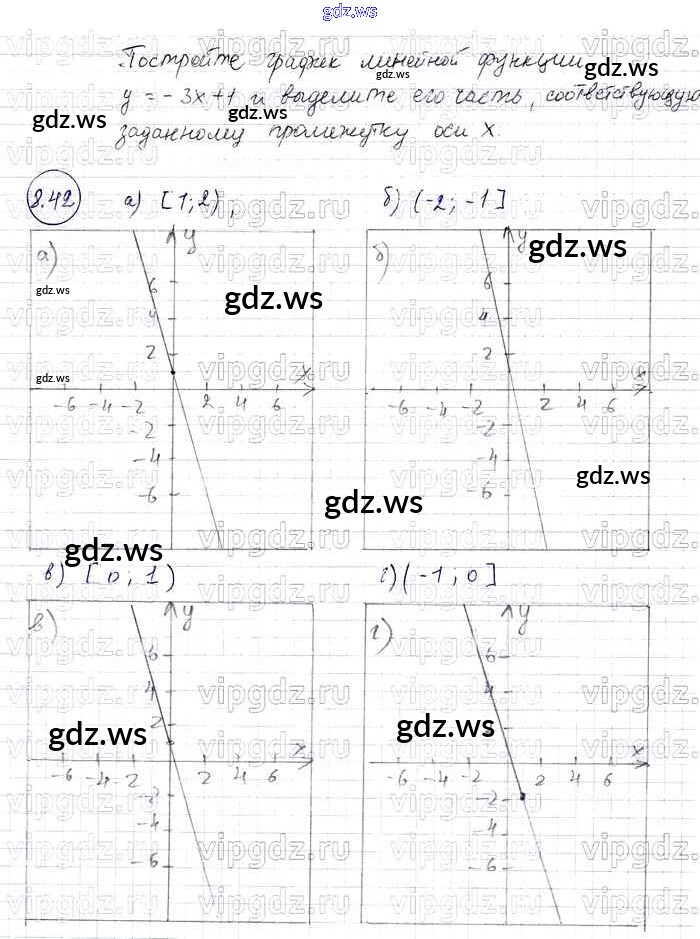 gdz.ws
Постройте график линейной функции
y = -3x+1 и выделите его часть, соответствующую
заданному промежутку оси x.
gdz.ws
gdz.ws
gdz.ws
8.42 а) [1;2), б) (-2; -1]
а) y
б) y
gdz.ws
gdz.ws
gdz.ws
6 4 2
6 4 2
gdz.ws
x
x
-6 -4 -2 2 4 6
-6 -4 -2 2 4 6
-2 -4 -6
-2 -4 -6
gdz.ws
gdz.ws
gdz.ws
в) [0; 1) г) (-1; 0]
в) y
г) y
6 4 2
6 4
gdz.ws
gdz.ws
x
x
-6 -4 -2 2 4 6
-6 -4 -2 2 4 6
-2 -4 -6
-2 -4 -6
vipgdz.ru